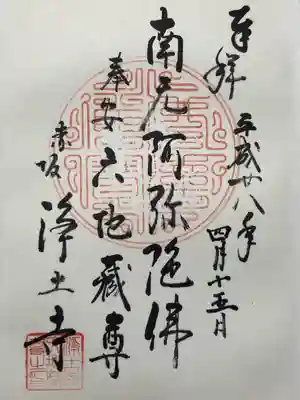 奉拝 平成廿八年
四月十五日
南无阿弥陀佛
奉安六地蔵尊
赤坂 浄土寺